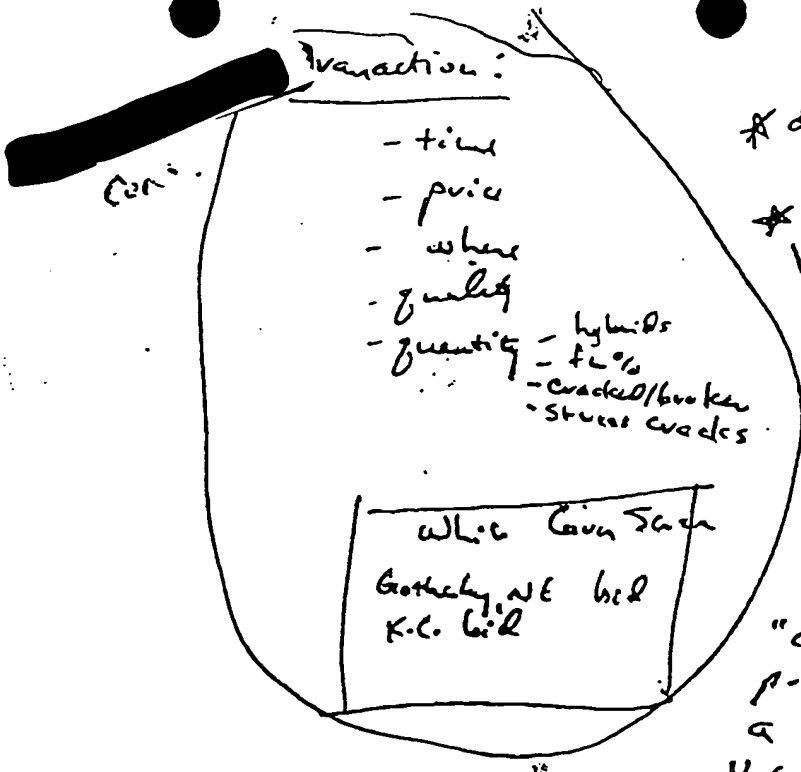 Tranaction:
- time
- price
- where
- quality
- quantity - hybrids
- fm %
- cracked/broken
- stress cracks
White Corn
Gothenburg, NE bid
K.C. bid
"
a